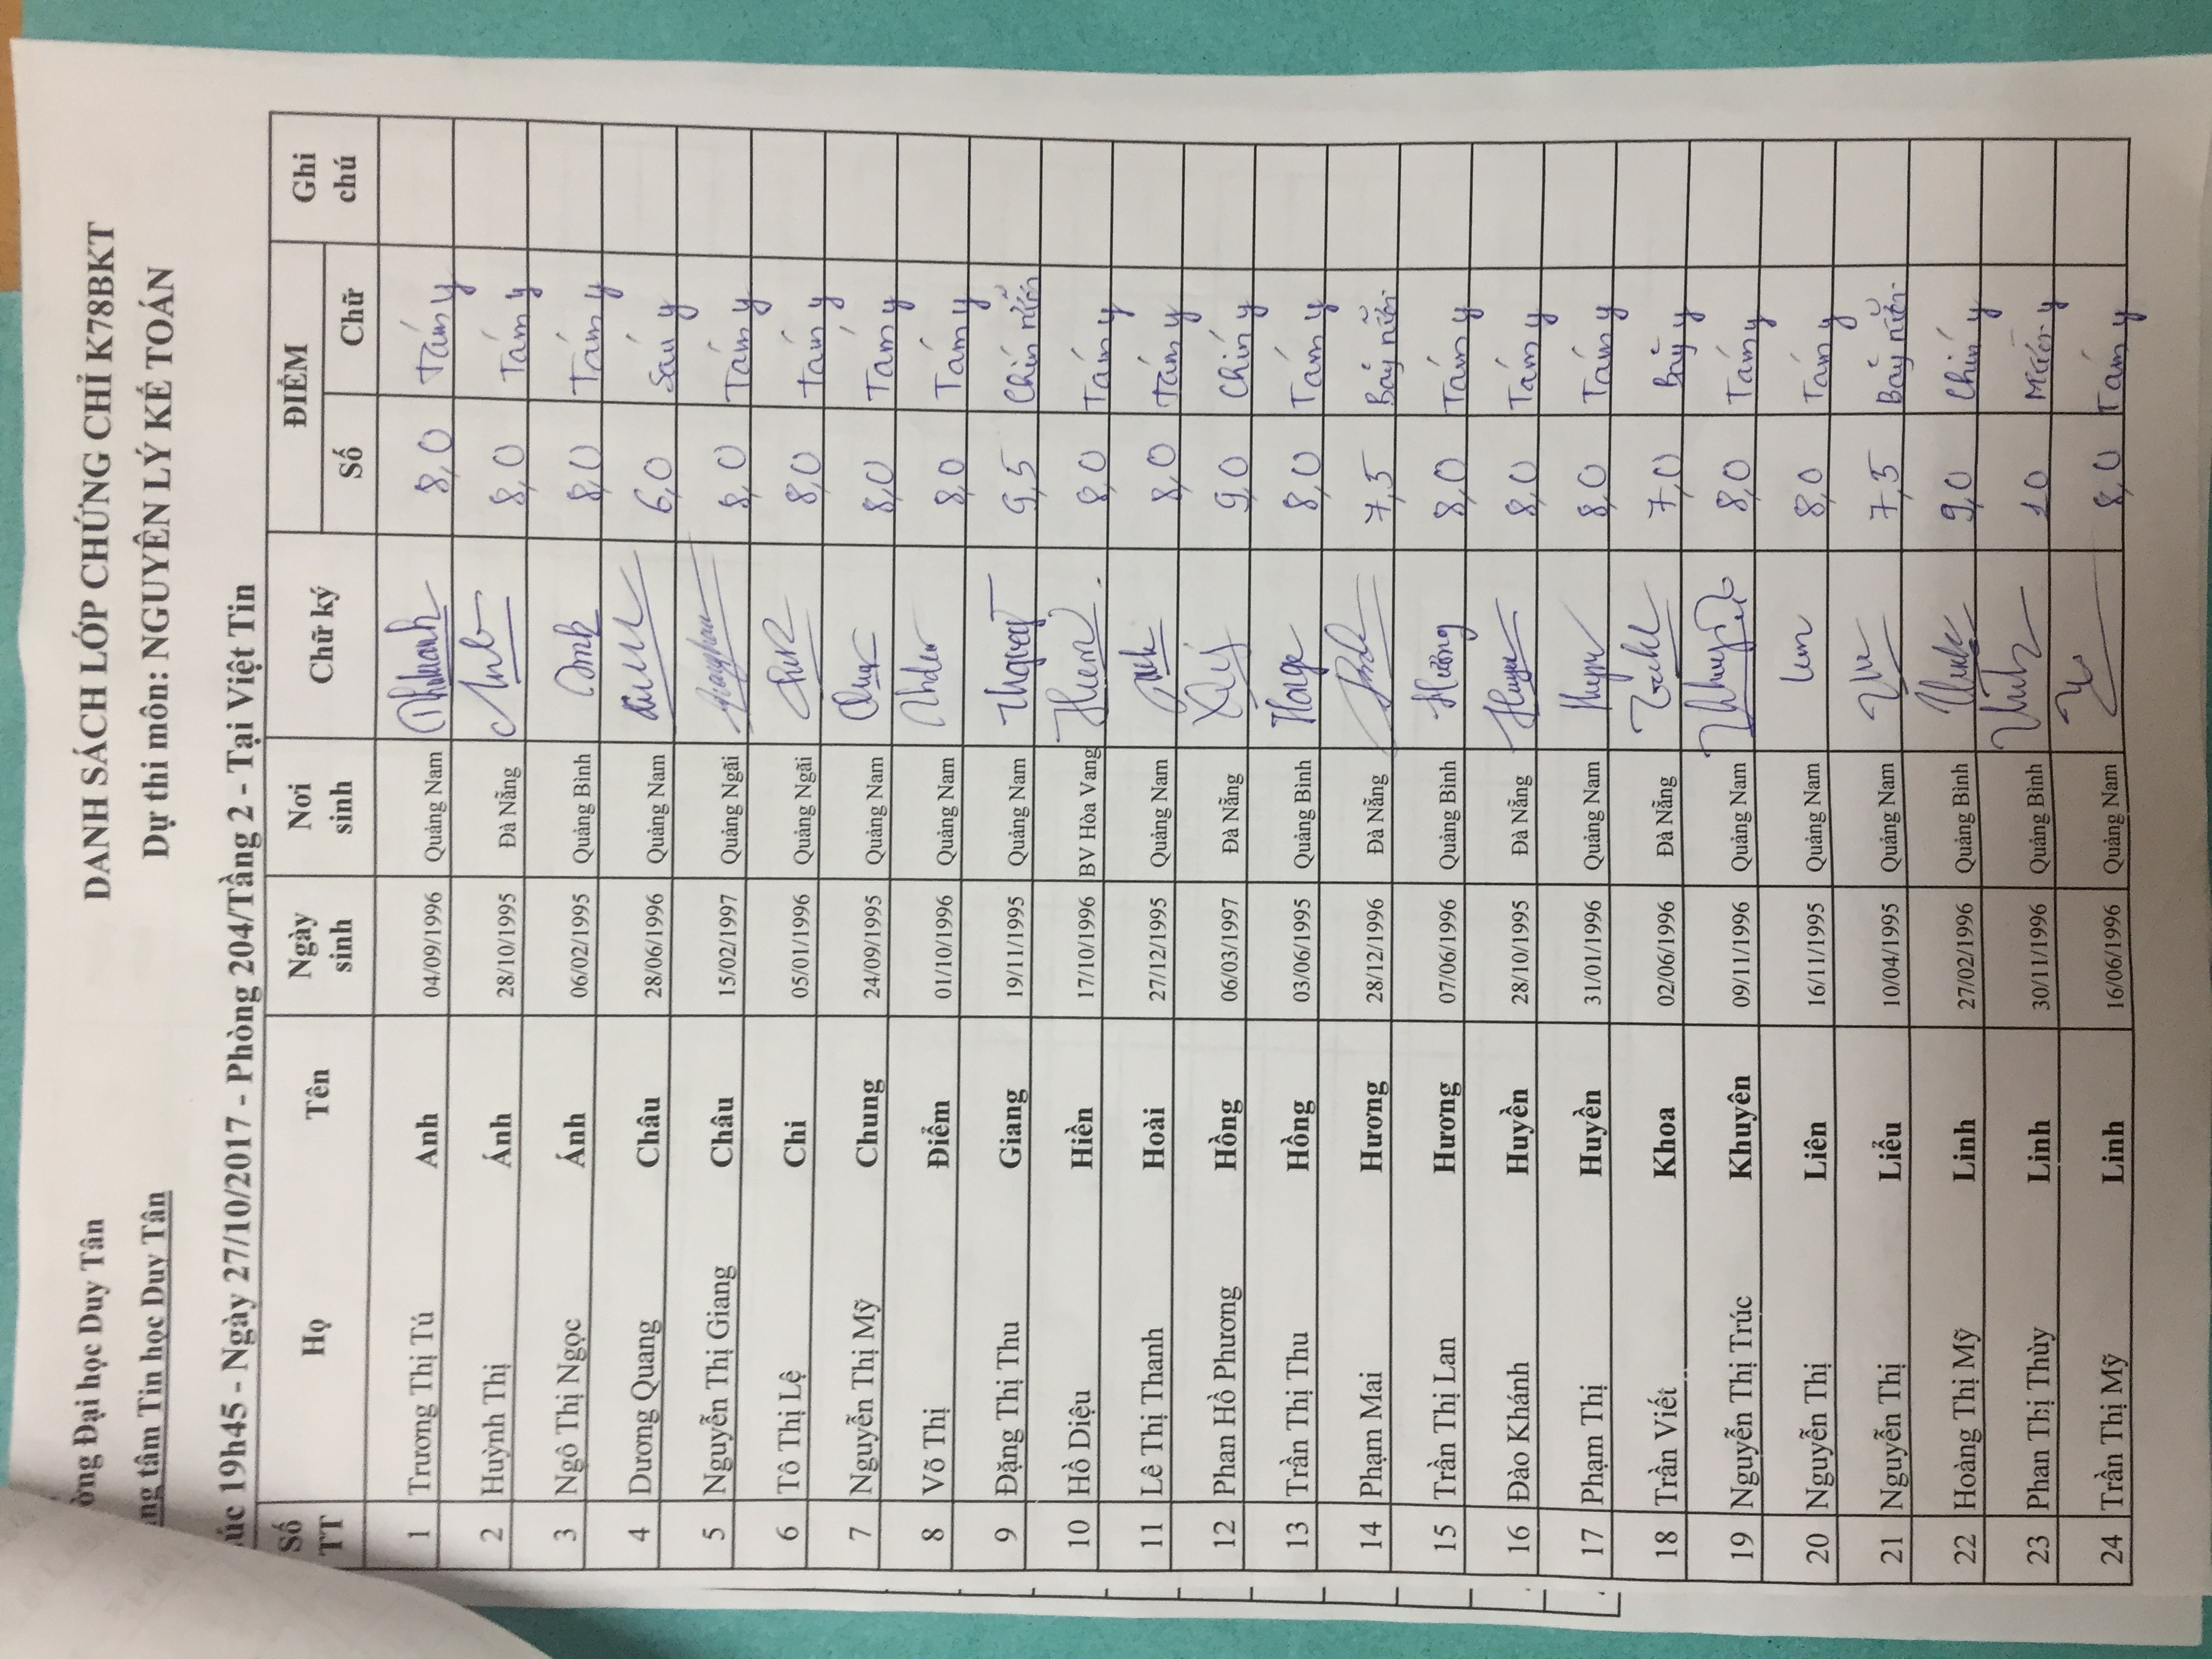 ờng Đại học Duy Tân DANH SÁCH LỚP CHỨNG CHỈ K78BKT
ng tâm Tin học Duy Tân Dự thi môn: NGUYÊN LÝ KẾ TOÁN
úc 19h45 - Ngày 27/10/2017 - Phòng 204/Tầng 2 - Tại Việt Tin
Số TT Họ Tên Ngày sinh Nơi sinh Chữ ký ĐIỂM Ghi chú
Số Chữ
1 Trương Thị Tú Anh 04/09/1996 Quảng Nam 8,0 Tám y
2 Huỳnh Thị Ánh 28/10/1995 Đà Nẵng 8,0 Tám y
3 Ngô Thị Ngọc Ánh 06/02/1995 Quảng Bình 8,0 Tám y
4 Dương Quang Châu 28/06/1996 Quảng Nam 6,0 Sáu y
5 Nguyễn Thị Giang Châu 15/02/1997 Quảng Ngãi 8,0 Tám y
6 Tô Thị Lệ Chi 05/01/1996 Quảng Ngãi 8,0 Tám y
7 Nguyễn Thị Mỹ Chung 24/09/1995 Quảng Nam 8,0 Tám y
8 Võ Thị Điểm 01/10/1996 Quảng Nam 8,0 Tám y
9 Đặng Thị Thu Giang 19/11/1995 Quảng Nam 9,5 Chín rưỡi
10 Hồ Diệu Hiền 17/10/1996 BV Hòa Vang Hiền 8,0 Tám y
11 Lê Thị Thanh Hoài 27/12/1995 Quảng Nam 8,0 Tám y
12 Phan Hồ Phương Hồng 06/03/1997 Đà Nẵng 9,0 Chín y
13 Trần Thị Thu Hồng 03/06/1995 Quảng Bình 8,0 Tám y
14 Phạm Mai Hương 28/12/1996 Đà Nẵng 7,5 Bảy rưỡi
15 Trần Thị Lan Hương 07/06/1996 Quảng Bình Hương 8,0 Tám y
16 Đào Khánh Huyền 28/10/1995 Đà Nẵng 8,0 Tám y
17 Phạm Thị Huyền 31/01/1996 Quảng Nam 8,0 Tám y
18 Trần Viết Khoa 02/06/1996 Đà Nẵng 7,0 Bảy y
19 Nguyễn Thị Trúc Khuyên 09/11/1996 Quảng Nam 8,0 Tám y
20 Nguyễn Thị Liên 16/11/1995 Quảng Nam 8,0 Tám y
21 Nguyễn Thị Liểu 10/04/1995 Quảng Nam 7,5 Bảy rưỡi
22 Hoàng Thị Mỹ Linh 27/02/1996 Quảng Bình 9,0 Chín y
23 Phan Thị Thùy Linh 30/11/1996 Quảng Bình 10 Mười y
24 Trần Thị Mỹ Linh 16/06/1996 Quảng Nam 8,0 Tám y